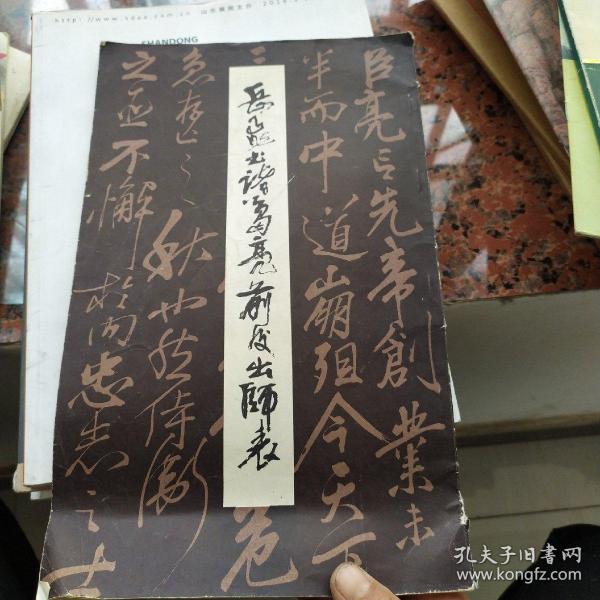 http://www.sdca.com.cn
SHANDONG
臣亮言先帝創業未
半而中道崩殂今天下
三
危
急存亡之秋也然侍衛
之臣不懈於内忠志之士
岳飛书諸葛亮前後出師表
孔夫子旧書网
www.kongfz.com